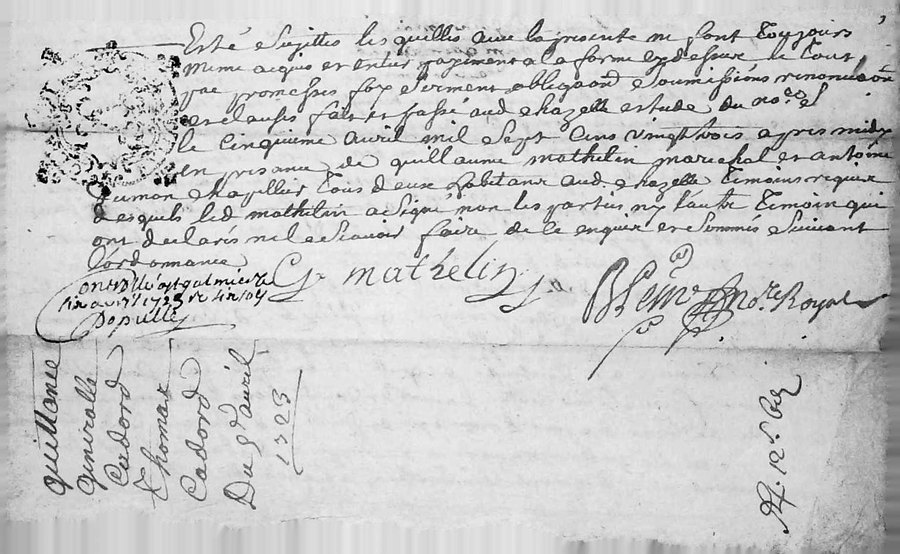 Esté Sujittes les quillés avec la presente ne font Toujours
Meme acquis et entier payement a la forme cydessus le Tout
par promesses foy Serment obligaõn Soumissions renonciaõn
et clauses fait et passé aud chazelle estude du nore
le cinquieme avril mil Sept Cens vingt trois apres midy
en presance de guillaume mathelin marechal et antoine
dumon chapellier Tous deux habitans aud chazelle Temoins requis
desquels led mathelin a Signé non les parties ny lautre Temoin qui
ont declarés ne le Scavoir faire de ce enquis et Sommés Suivant
lordonnance
G mathelin
nore Royal
Controllé a st galmier le
avril 1723
Populle
quittance
generalle
Cadord
Thomas
Cadord
Du 5e avril
1723